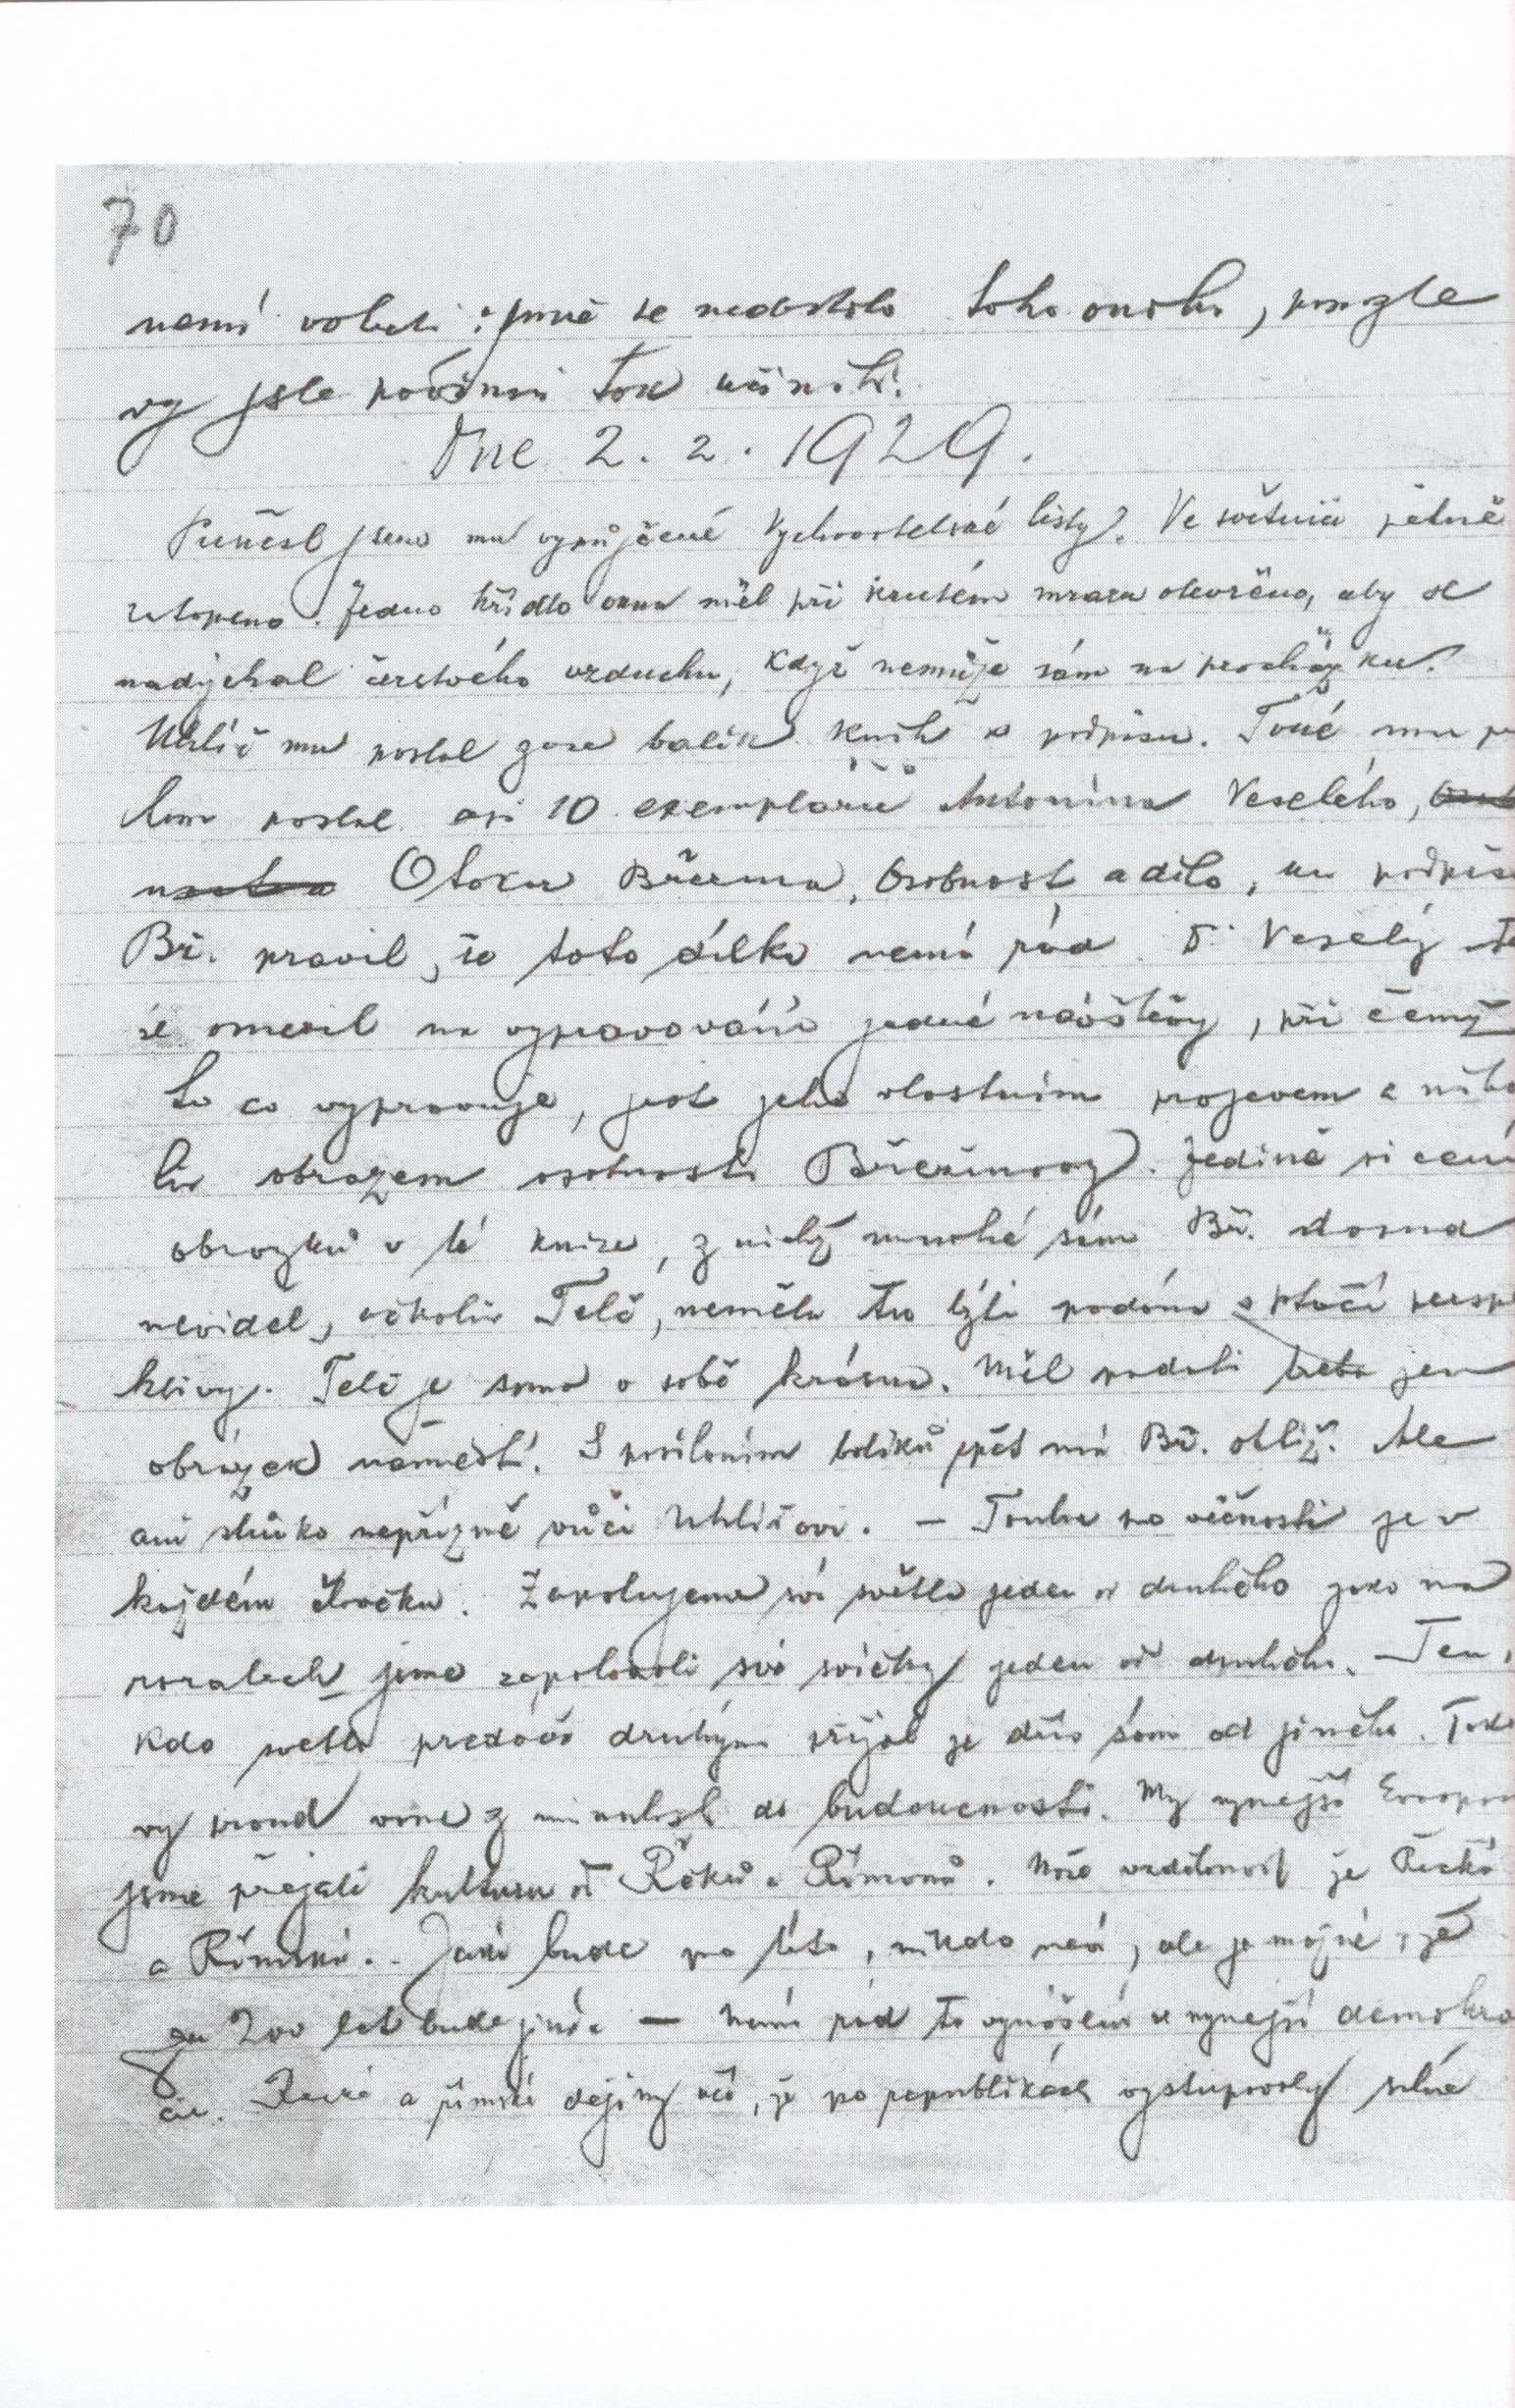 70
nemá volati: mně se nedostalo toho onoho, nýbrž
vy jste povinni tak učiniti.
Dne 2. 2. 1929.
Přinesl jsem mu vypůjčené Vychovatelské listy. Ve světnici pěkně
zatopeno. Jedno křídlo okna měl při krutém mrazu otevřeno, aby se
nadýchal čerstvého vzduchu, když nemůže sám na procházku.
Uhlíř mu poslal zase balík knih k podpisu. Také mu
poslal asi 10 exemplářů Antonína Veselého,
Otokar Březina, Osobnost a dílo, ku podpisu
Bř. pravil, že toto dílko nemá rád. Veselý
se omezil na vypravování jedné návštěvy, při čemž
to co vypravuje, jest jeho vlastním projevem a niko
liv obrazem osobnosti Březinovy. Jedině si cení
obrázků v té knize, z nichž mnohé sám Bř. doma
neviděl, ačkoliv Telč, neměla tu býti podána s ptačí persp
ktivy. Telč je sama o sobě krásna. Měl podati jen
obrázek náměstí. S posíláním balíků zpět má Bř. obtíž. Ale
ani slůvko nepřízně vůči Uhlířovi. – Touha po věčnosti je v
každém člověku. Zapalujeme svá světla jeden od druhého jako na
roratech jsme zapalovali své svíčky jeden od druhého. – Ten,
kdo světlo předává druhým přijal je dřív sám od jiného. Tako
vý proud vane z minulosti do budoucnosti. My nynější Evropan
jsme přejali kulturu od Řeků a Římanů. Naše vzdělanost je Řecká
a Římská. Jaká bude po této, nikdo neví, ale je možné, že
za 200 let bude jináč — Nemá rád to vynášení se nynější demokra
cie. Řecké a římské dějiny učí, že po republikách vystupovaly silné